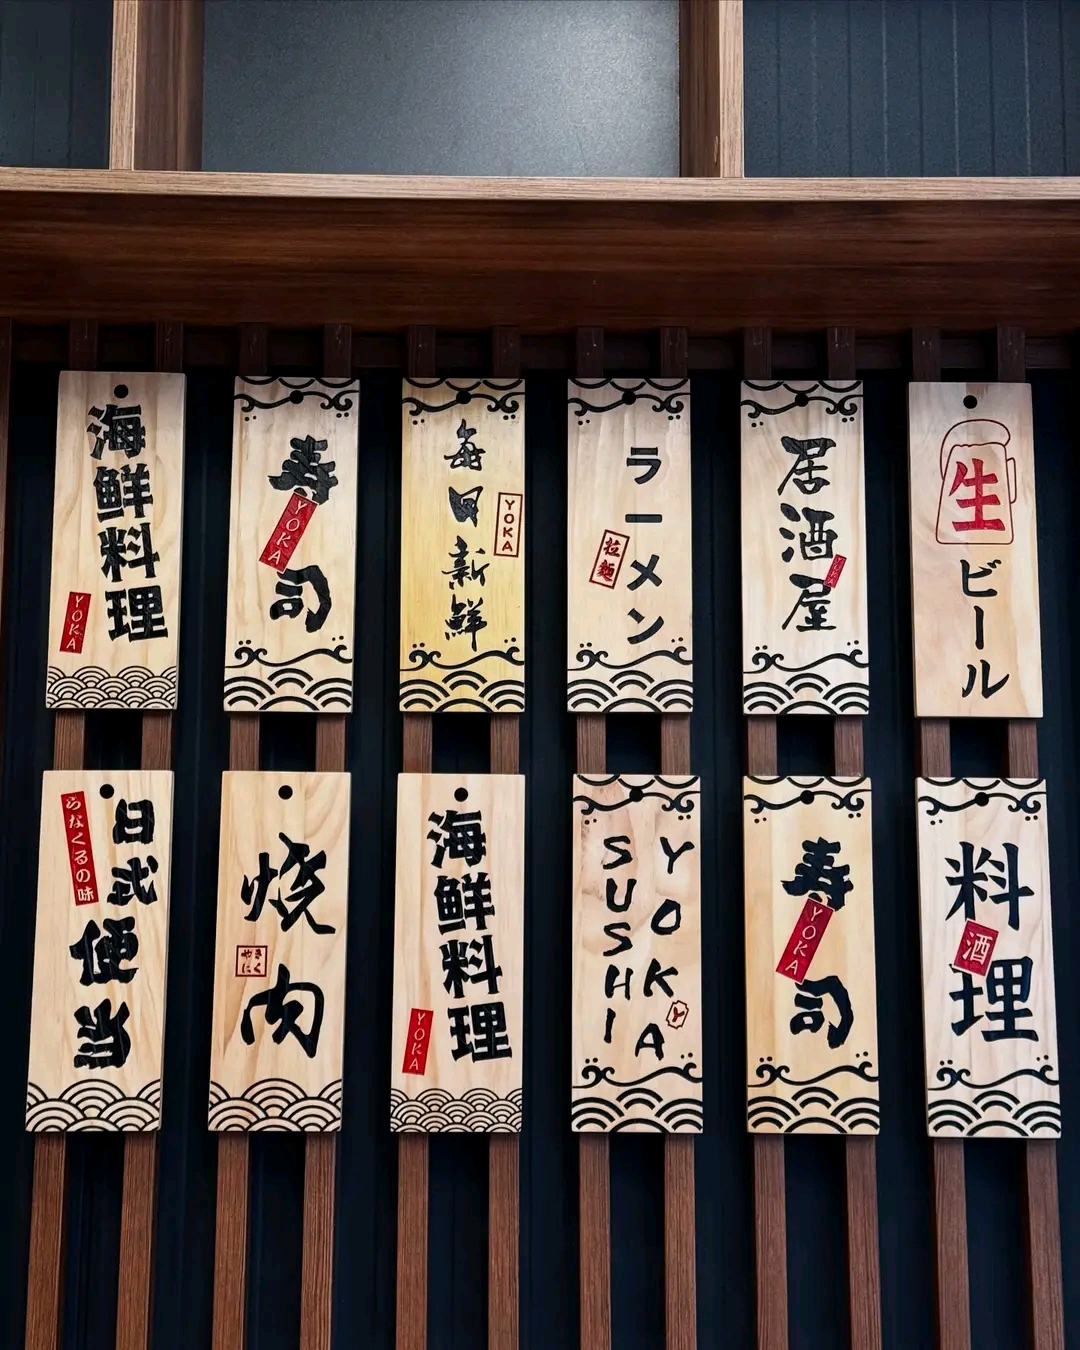 海鮮料理
YOKA
寿司
YOKA
毎日新鮮
YOKA
ラーメン
拉麺
居酒屋
YOKA
生ビール
日式便当
らなくるの味
焼肉
やきにく
海鮮料理
YOKA
YOKA
SUSHI
Y
寿司
YOKA
料理
酒